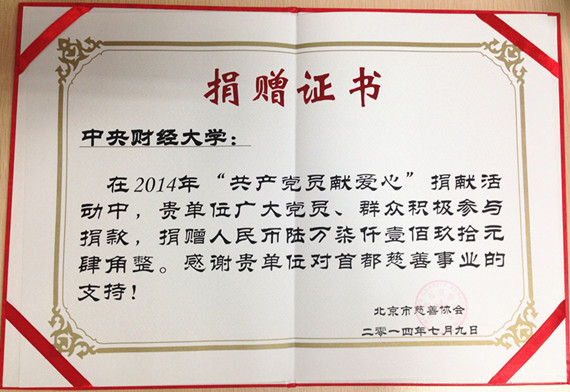 捐赠证书
中央财经大学：
在2014年“共产党员献爱心”捐献活
动中，贵单位广大党员、群众积极参与
捐款，捐赠人民币陆万柒仟壹佰玖拾元
肆角整。感谢贵单位对首都慈善事业的
支持！
北京市慈善协会
二零一四年七月九日